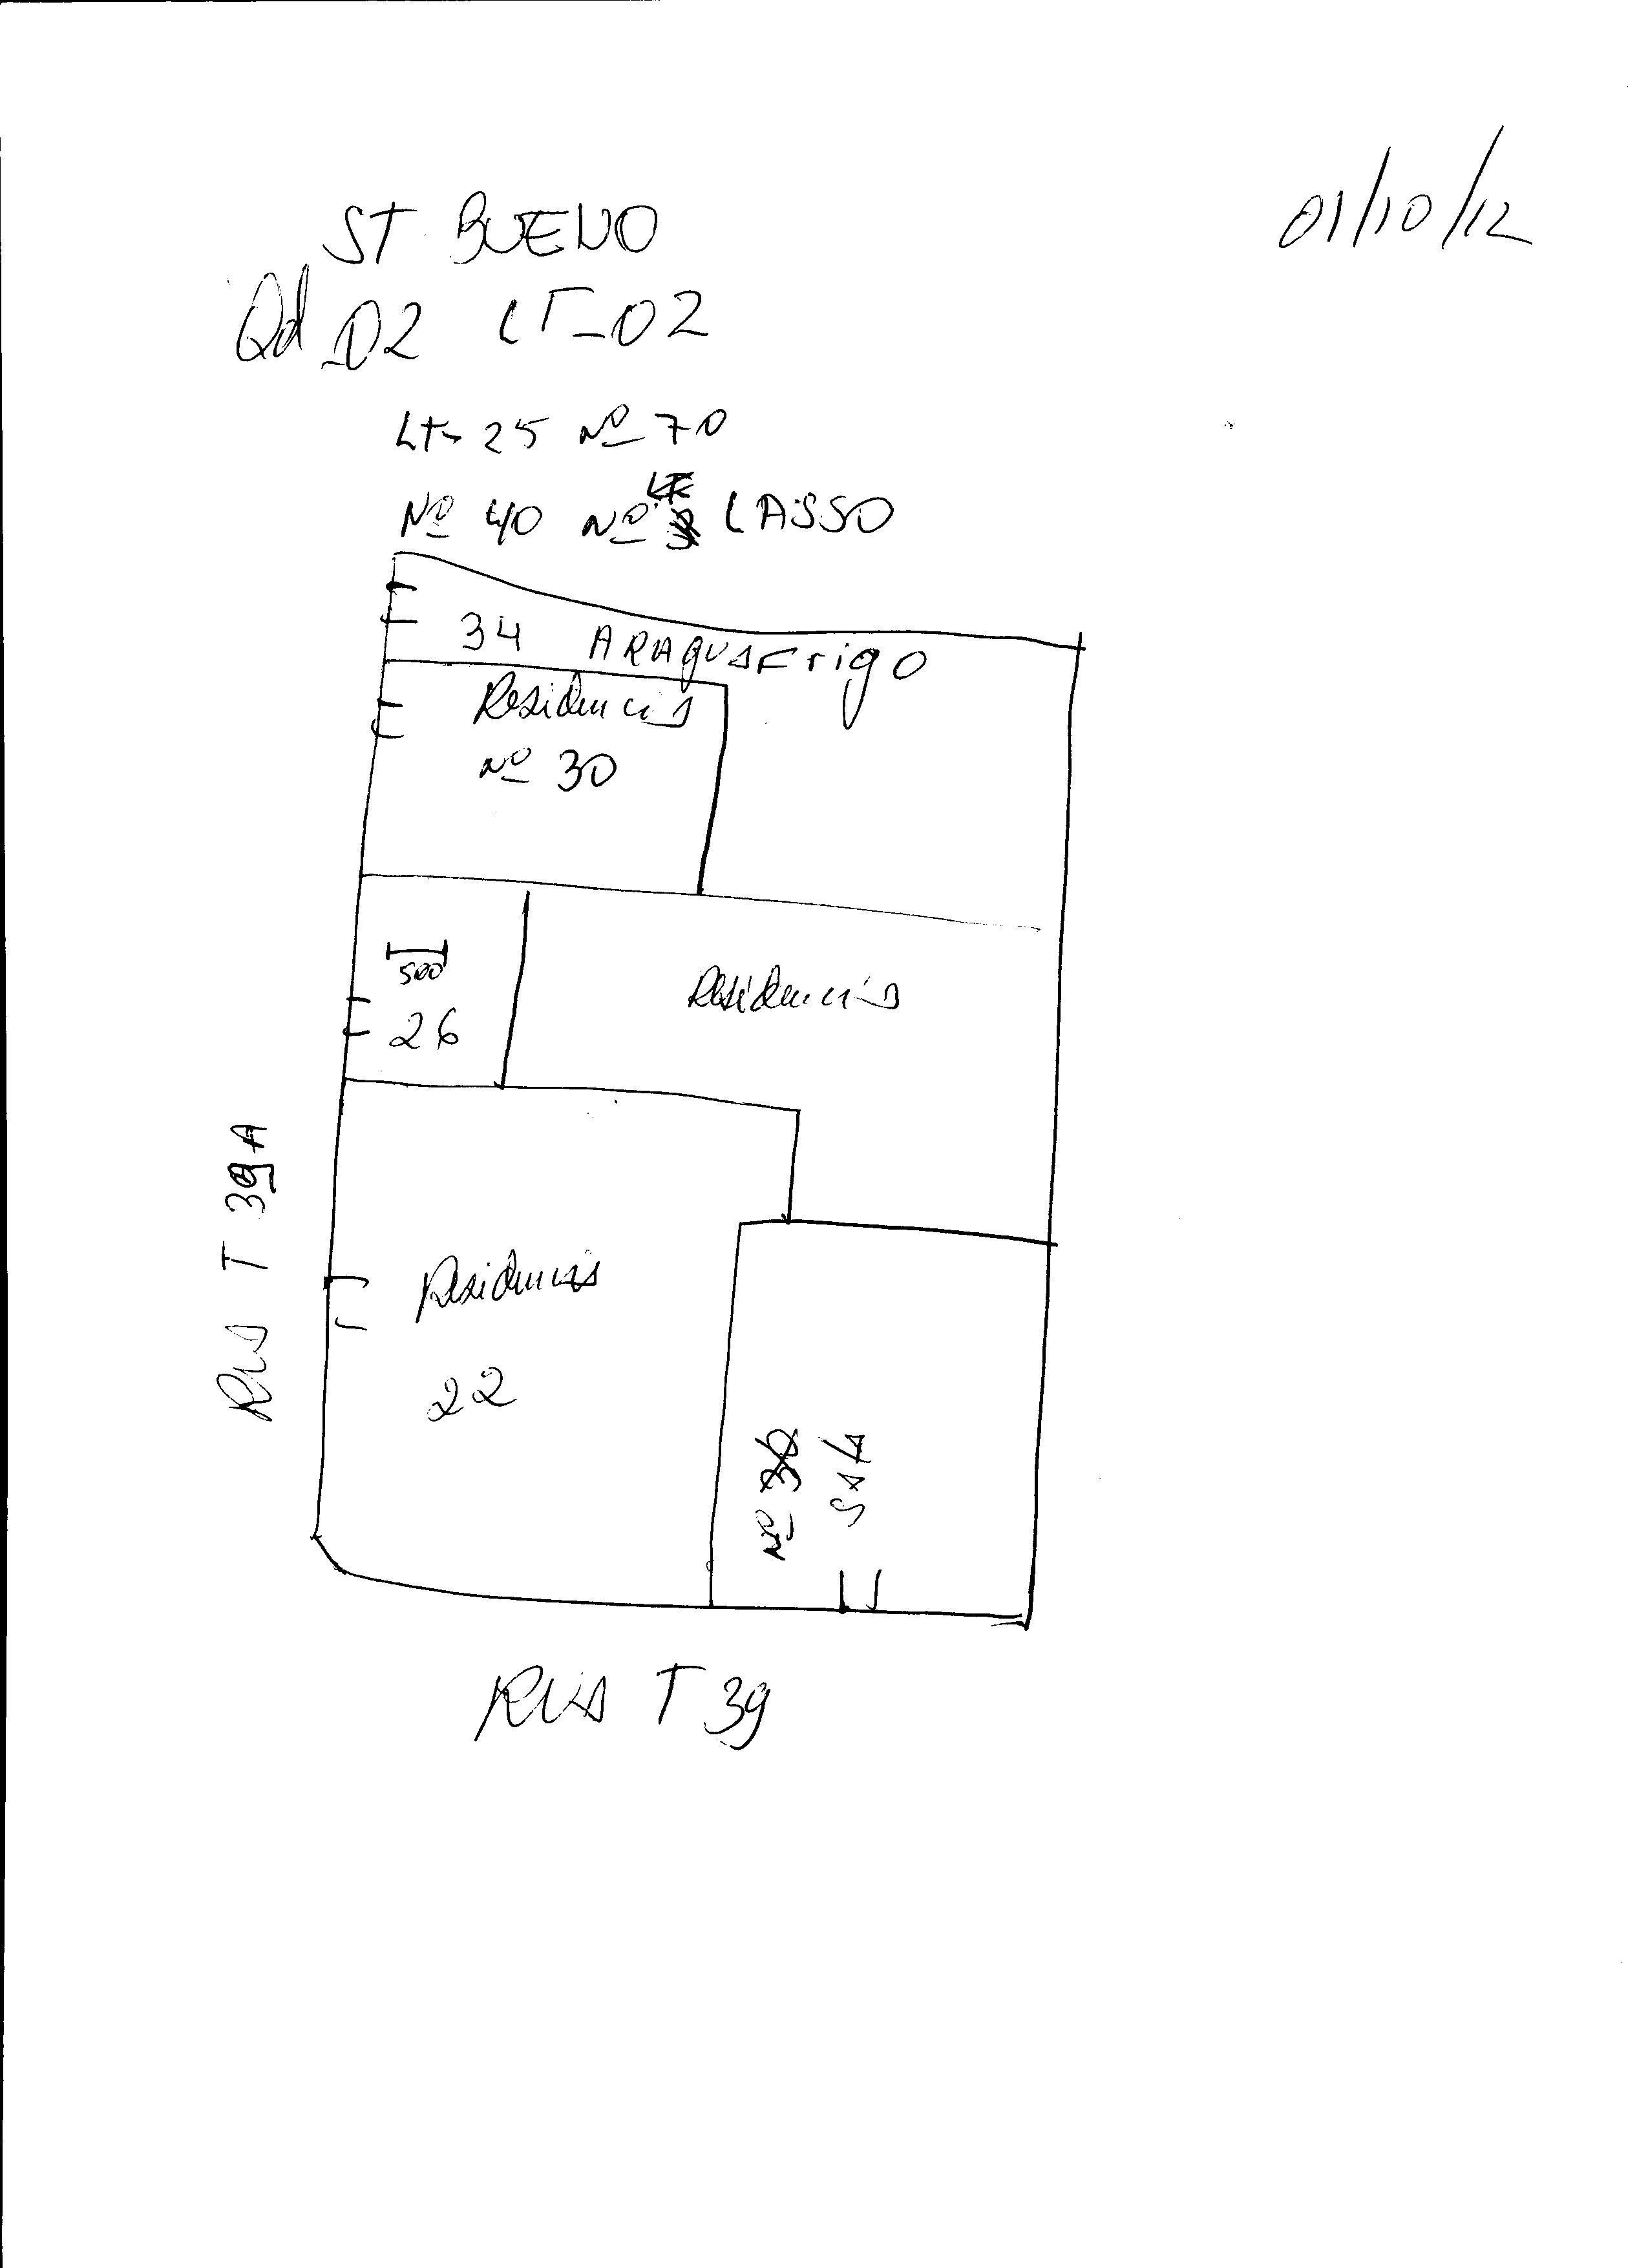 01/10/12
ST BUENO
Qd 02 LT-02
Lt- 25 Nº 70
Nº 40 Nº LASSO
34 ARAGUAFrigo
Residencia
Nº 30
500
26
Residencia
Rua T 39A
Residencia
22
Nº
Rua T 39